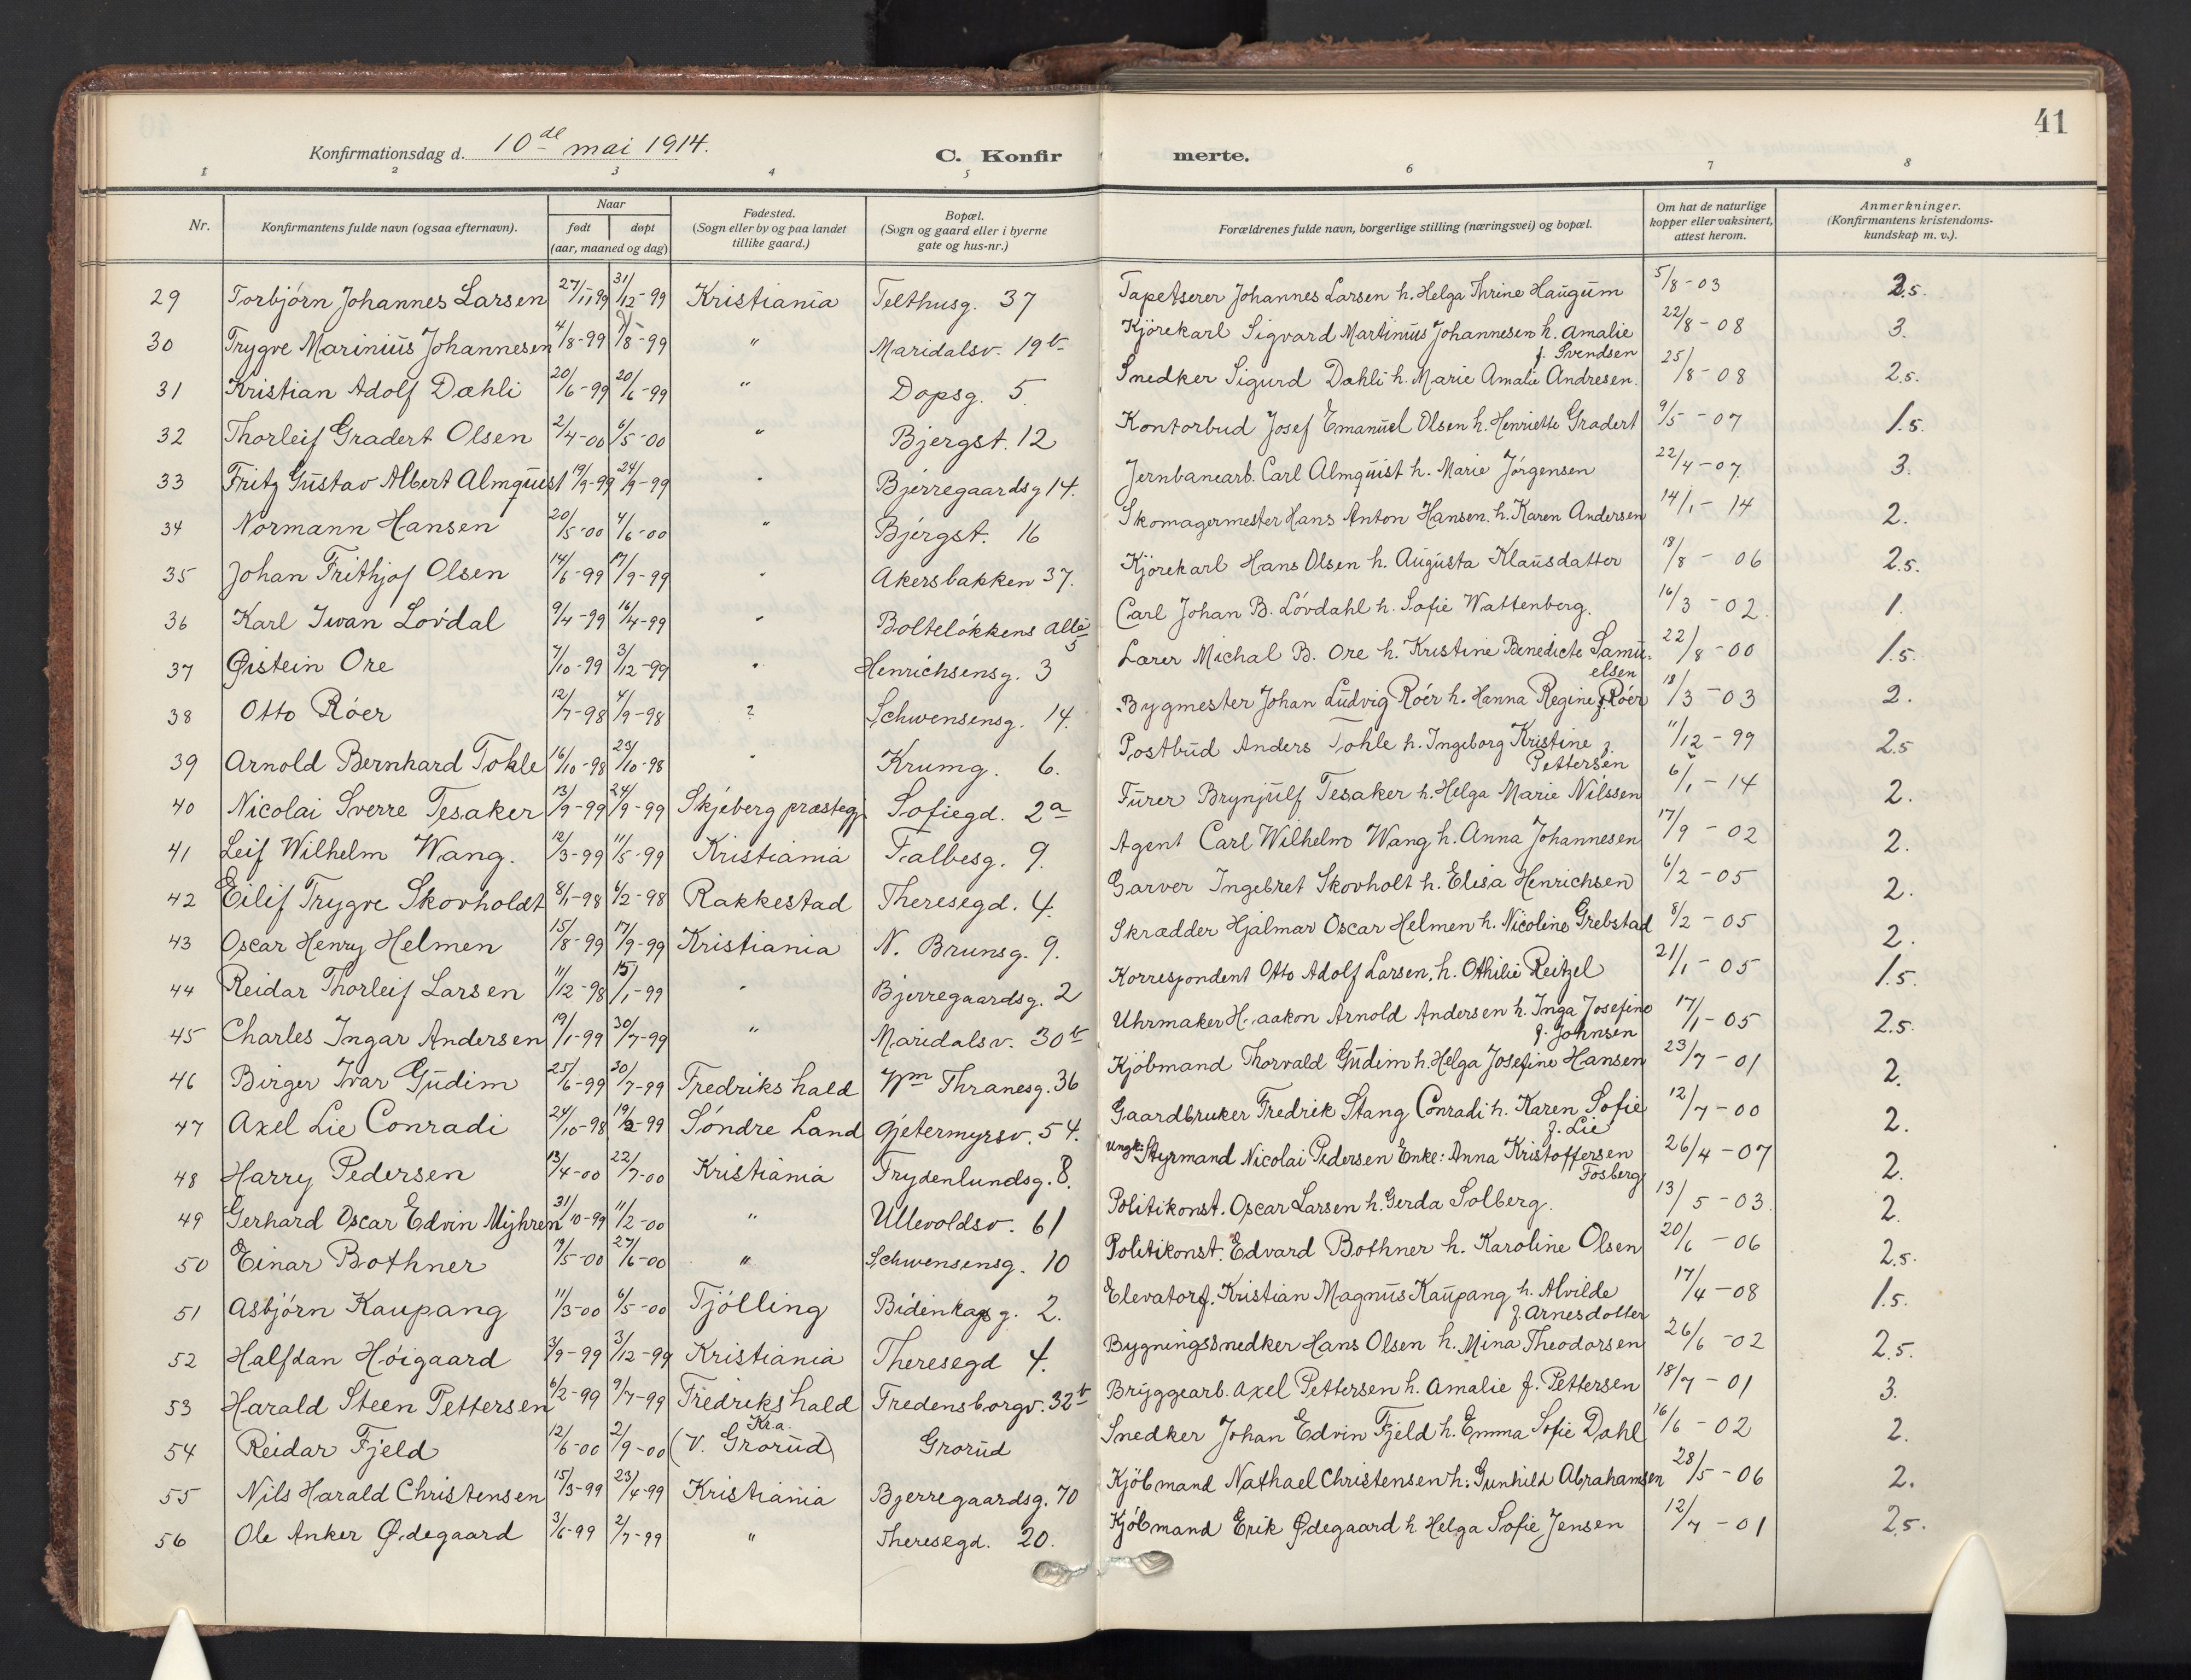 41
Konfirmationsdag d. 10de mai 1914.
C. Konfirmerte.
1 2 3 4 5 6 7 8
Nr. Konfirmantens fulde navn (ogsaa efternavn). Naar født døpt (aar, maaned og dag) Fødested. (Sogn eller by og paa landet tillike gaard.) Bopæl. (Sogn og gaard eller i byerne gate og hus-nr.) Forældrenes fulde navn, borgerlige stilling (næringsvei) og bopæl. Om hat de naturlige kopper eller vaksinert, attest herom. Anmerkninger. (Konfirmantens kristendoms-kundskap m. v.).
29 Torbjørn Johannes Larsen 27/11 99 31/12-99 Kristiania Telthusg. 37 Tapetserer Johannes Larsen h. Helga Thrine Haugum 5/8-03 2.5.
30 Trygve Marinius Johannesen 4/8-99 /8-99 " Maridalsv. 19b Kjørekarl Sigvard Martinius Johannesen h. Amalie f. Svendsen 22/8-08 3.
31 Kristian Adolf Dæhli 20/6-99 20/6-99 " Dopsg. 5. Snedker Sigurd Dæhli h. Marie Amalie Andresen. 25/8-08 2.5.
32 Thorleif Gradert Olsen 2/4-00 6/5-00 " Bjergst. 12 Kontorbud Josef Emanuel Olsen h. Henriette Gradert 9/5-07 1.5.
33 Fritz Gustav Albert Almquist 19/9-99 24/9-99 " Bjerregaardsg 14. Jernbanearb. Carl Almquist h. Marie Jørgensen 22/4-07. 3.
34 Normann Hansen 20/5-00 4/6-00 " Bjergst. 16 Skomagermester Hans Anton Hansen. h. Karen Andersen 14/1-14 2.
35 Johan Frithjof Olsen 14/6-99 17/9-99 " Akersbakken 37. Kjørekarl Hans Olsen h. Augusta Klausdatter 18/8-06 2.5.
36 Karl Iwan Lovdal 9/4-99 16/4-99 " Bolteløkkens allè 5 Carl Johan B. Løvdahl h. Sofie Wattenberg. 16/3-02. 1.
37 Øistein Ore 7/10-99 3/12-99 " Henrichsensg. 3 Lærer Michal B. Ore h. Kristine Benedicte Samuelsen 22/8-00 1.5.
38 Otto Röer 12/7-98 4/9-98 ? Schwensensg. 14. Bygmester Johan Ludvig Röer h. Hanna Regine f. Röer 18/3-03 2.
39 Arnold Bernhard Tokle 16/10-98 23/10-98 " Krumg. 6. Postbud Anders Tohle h. Ingeborg Kristine f. Pettersen 11/12-99 2.5
40 Nicolai Sverre Tesaker 13/9-99 24/9-99 Skjeberg præstegj Sofiegd. 2a Furer Brynjulf Tesaker h. Helga Marie Nilssen 6/1-14 2.
41 Leif Wilhelm Wang. 12/3-99 11/5-99 Kristiania Falbesg. 9. Agent Carl Wilhelm Wang h. Anna Johannesen 17/9-02 2.
42 Eilif Trygve Skovholdt 8/1-98 6/2-98 Rakkestad Theresegd. 4. Garver Ingebret Skovholt h. Elisa Henrichsen 6/2-05 2.
43 Oscar Henry Helmen 15/8-99 17/9-99 Kristiania N. Brunsg. 9. Skrædder Hjalmar Oscar Helmen h. Nicoline Grebstad 8/2-05 2.
44 Reidar Thorleif Larsen 11/12-98 15/1-99 " Bjerregaardsg. 2 Korrespondent Otto Adolf Larsen, h. Othilie Reitzel 21/1-05 1.5.
45 Charles Ingar Andersen 19/1-99 30/7-99 " Maridalsv. 30b Uhrmaker Haakon Arnold Andersen h. Inga Josefine f. Johnsen 17/1-05 2.5.
46 Birger Ivar Gudim 25/6-99 30/7-99 Fredrikshald Wm Thranesg. 36 Kjøbmand Thorvald Gudim h. Helga Josefine Hansen 23/7-01 2.
47 Axel Lie Conradi 24/10-98 19/2-99 Søndre Land Gjetermyrsv. 54. Gaardbruker Fredrik Stang Conradi h. Karen Sofie f. Lie 12/7-00 2.
48 Harry Pedersen 13/4-00 22/7-00 Kristiania Frydenlundsg. 8. Ungk: Styrmand Nicolai Pedersen Enke: Anna Kristoffersen Fosberg 26/4-07 2.
49 Gerhard Oscar Edvin Myhren 31/10-99 11/2-00 " Ullevoldsv. 61 Politikonst. Oscar Larsen h. Gerda Solberg. 13/5-03. 2.
50 Einar Bothner 19/5-00 27/6-00 " Schwensensg. 10 Politikonst. Edvard Bothner h. Karoline Olsen 20/6-06 2.5.
51 Asbjørn Kaupang 11/3-00 6/5-00 Tjølling Bidenkapsg. 2. Elevatorf. Kristian Magnus Kaupang h. Alvilde f. Arnesdotter 17/4-08 1.5.
52 Halfdan Høigaard 3/9-99 3/12-99 Kristiania Theresegd 4. Bygningssnedker Hans Olsen h. Mina Theodorsen 26/6-02 2.5.
53 Harald Steen Pettersen 6/2-99 9/7-99 Fredrikshald Fredensborgv. 32b Bryggearb. Axel Pettersen h. Amalie f. Pettersen 18/7-01 3.
54 Reidar Fjeld 12/6-00 2/9-00 (V. Grorud) Kra. Grorud Snedker Johan Edvin Fjeld h. Emma Sofie Dahl 16/6-02 2.
55 Nils Harald Christensen 15/3-99 23/4-99 Kristiania Bjerregaardsg. 70 Kjøbmand Nathael Christensen h: Gunhild Abrahamsen 28/5-06 2.
56 Ole Anker Ødegaard 3/6-99 2/7-99 " Theresegd. 20. Kjøbmand Erik Ødegaard h Helga Sofie Jensen 12/7-01 2.5.